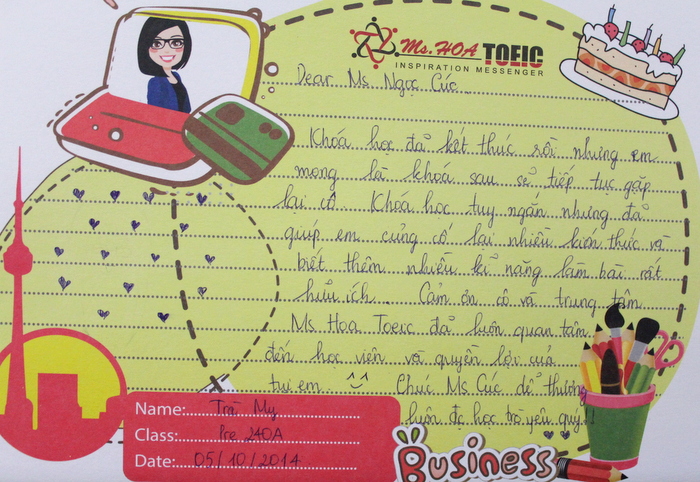 Ms. HOA TOEIC
INSPIRATION MESSENGER
Dear Ms Ngọc Cúc
Khoá học đã kết thúc rồi nhưng em
mong là khoá sau sẽ tiếp tục gặp
lại cô. Khoá học tuy ngắn nhưng đã
giúp em củng cố lại nhiều kiến thức và
biết thêm nhiều kĩ năng làm bài rất
hữu ích. Cảm ơn cô và trung tâm
Ms Hoa Toeic đã luôn quan tâm
đến học viên và quyền lợi của
tụi em ^^ Chúc Ms Cúc dễ thương
luôn đc học trò yêu quý!!
Name: Trà My
Class: Pre 240A
Date: 05/10/2014
Business